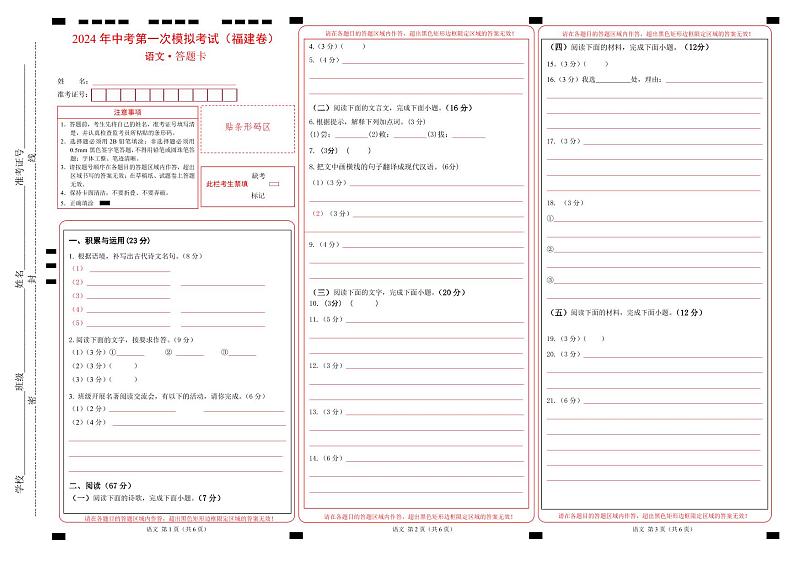 2024 年中考第一次模拟考试（福建卷）
语文·答题卡
姓 名：
准考证号：
注意事项
1．答题前，考生先将自己的姓名，准考证号填写清
楚，并认真检查监考员所粘贴的条形码。
2．选择题必须用 2B 铅笔填涂；非选择题必须用
0.5mm 黑色签字笔答题，不得用铅笔或圆珠笔答
题；字体工整、笔迹清晰。
3．请按题号顺序在各题目的答题区域内作答，超出
区域书写的答案无效；在草稿纸、试题卷上答题
无效。
4．保持卡面清洁，不要折叠、不要弄破。
5．正确填涂
贴条形码区
此栏考生禁填
缺考
标记
准考证号
姓名
班级
学校
线
封
密
一、积累与运用(23 分)
1. 根据语境，补写出古代诗文名句。（8 分）
（1）
（2）
（3）
（4）
（5）
2. 阅读下面的文字，按要求作答。（9 分）
（1）（3 分）① ② ③
（2）（3 分）（ ）
（3）（3 分）（ ）
3. 班级开展名著阅读交流会，有以下的活动，请你完成。（6 分）
（1）（2 分）
（2）（4 分）
二、阅读（67 分）
（一）阅读下面的诗歌，完成下面小题。（7 分）
请在各题目的答题区域内作答，超出黑色矩形边框限定区域的答案无效！
语文 第 1 页（共 6 页）
请在各题目的答题区域内作答，超出黑色矩形边框限定区域的答案无效！
4.（3 分）（ ）
5.（4 分）
（二）阅读下面的文言文，完成下面小题。（16 分）
6. 根据提示，解释下列加点词。（3 分）
(1) 尝： (2)敕： (3)拔：
7.（3分）（ ）
8. 把文中画横线的句子翻译成现代汉语。（6分）
（1）（3 分）
（2）（3 分）
9.（4 分）
（三）阅读下面的文字，完成下面小题。（20 分）
10.（3分）（ ）
11.（5 分）
12.（3 分）
13.（3 分）
14.（6 分）
请在各题目的答题区域内作答，超出黑色矩形边框限定区域的答案无效！
语文 第 2 页（共 6 页）
请在各题目的答题区域内作答，超出黑色矩形边框限定区域的答案无效！
（四）阅读下面的材料，完成下面小题。（12分）
15.（3 分）（ ）
16.（3 分）我选 处，理由：
17.（3 分）
18.（3 分）
①
②
③
（五）阅读下面的材料，完成下面小题。（12 分）
19.（3 分）（ ）
20.（3 分）
21.（6 分）
请在各题目的答题区域内作答，超出黑色矩形边框限定区域的答案无效！
语文 第 3 页（共 6 页）